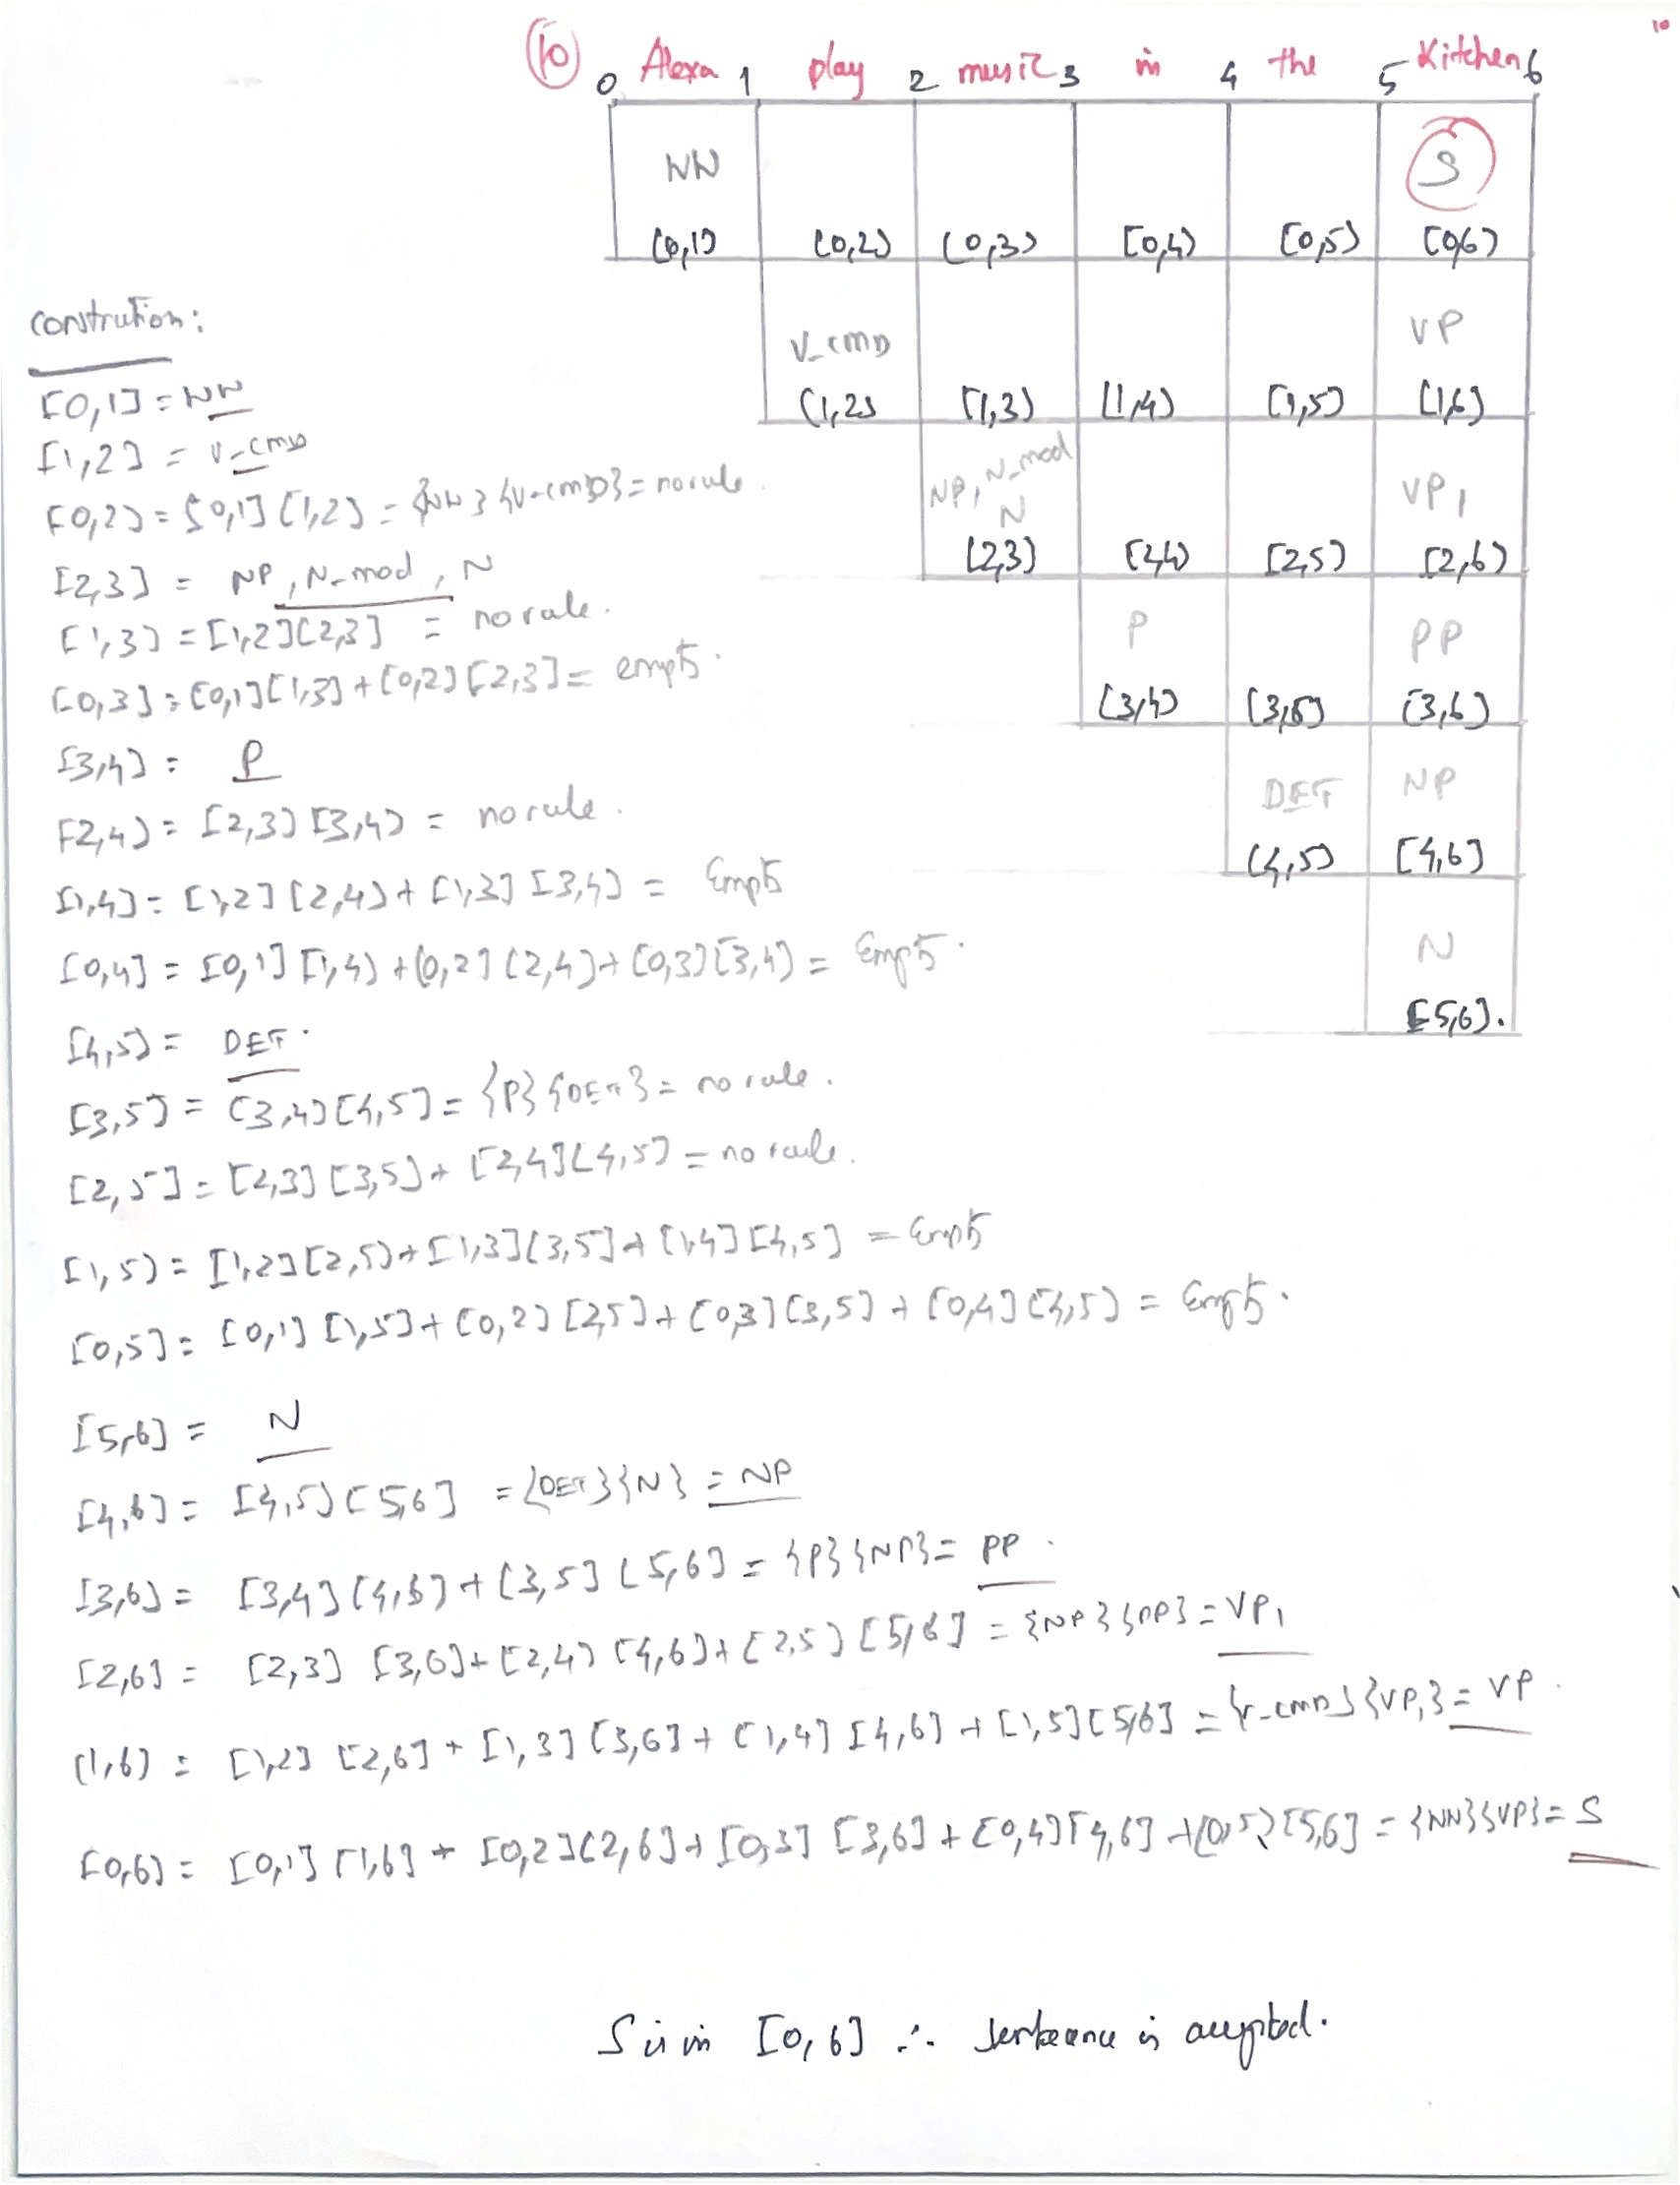 10
(10) 0 Alexa 1 play 2 music 3 in 4 the 5 Kitchen 6
NN S
[0,1] [0,2] [0,3] [0,4] [0,5] [0,6]
V_CMD VP
[1,2] [1,3] [1,4] [1,5] [1,6]
NP, N_mod N VP1
[2,3] [2,4] [2,5] [2,6]
P PP
[3,4] [3,5] [3,6]
DET NP
[4,5] [4,6]
N
[5,6].
constrution:
[0,1] = NN
[1,2] = V_CMD
[0,2] = [0,1] [1,2] = {NN} {V-CMD} = no rule.
[2,3] = NP, N-mod, N
[1,3] = [1,2][2,3] = no rule.
[0,3] = [0,1][1,3] + [0,2][2,3] = empty.
[3,4] = P
[2,4] = [2,3] [3,4] = no rule.
[1,4] = [1,2] [2,4] + [1,3] [3,4] = Empty
[0,4] = [0,1] [1,4] + [0,2] [2,4] + [0,3] [3,4] = Empty.
[4,5] = DET.
[3,5] = [3,4] [4,5] = {P} {DET} = no rule.
[2,5] = [2,3] [3,5] + [2,4] [4,5] = no rule.
[1,5] = [1,2] [2,5] + [1,3] [3,5] + [1,4] [4,5] = Empty
[0,5] = [0,1] [1,5] + [0,2] [2,5] + [0,3] [3,5] + [0,4] [4,5] = Empty.
[5,6] = N
[4,6] = [4,5] [5,6] = {DET}{N} = NP
[3,6] = [3,4] [4,6] + [3,5] [5,6] = {P} {NP} = PP.
[2,6] = [2,3] [3,6] + [2,4] [4,6] + [2,5] [5,6] = {NP} {PP} = VP1
[1,6] = [1,2] [2,6] + [1,3] [3,6] + [1,4] [4,6] + [1,5] [5,6] = {V-CMD} {VP1} = VP.
[0,6] = [0,1] [1,6] + [0,2] [2,6] + [0,3] [3,6] + [0,4] [4,6] + [0,5] [5,6] = {NN}{VP} = S
S is in [0,6] ∴ senteance is accepted.